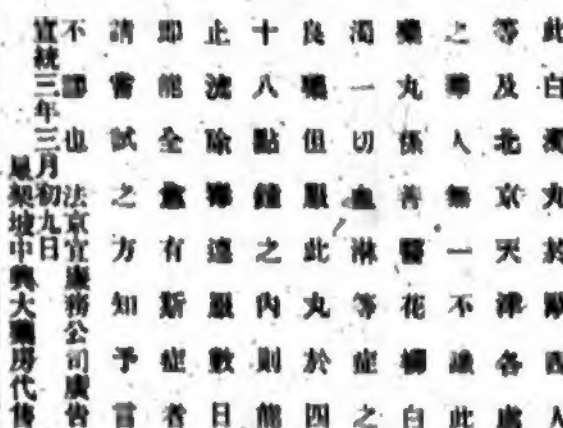 此白濁丸於歐西人
等及北京天津各處
之華人無一不識此
藥丸係善醫花柳白
濁一切血淋等症之
良藥但服此丸於四
十八點鐘之內則能
止除連服數日
即能全愈有斯症者
請嘗試之方知予言
不謬也
法京宜康務公司廣告
宣統三年三月初九日
星架坡中興大藥房代售